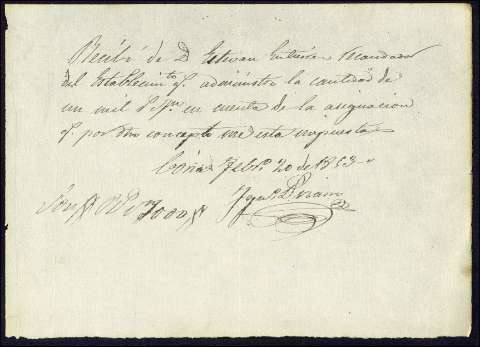 Recibí de D. Estevan Gutierrez Mandador
del Establecimto. q. administro la cantidad de
un mil Ps. en cuenta de la asignacion
q. por dho concepto me esta impuesta
Febo. 20 de 1853
Son 1000